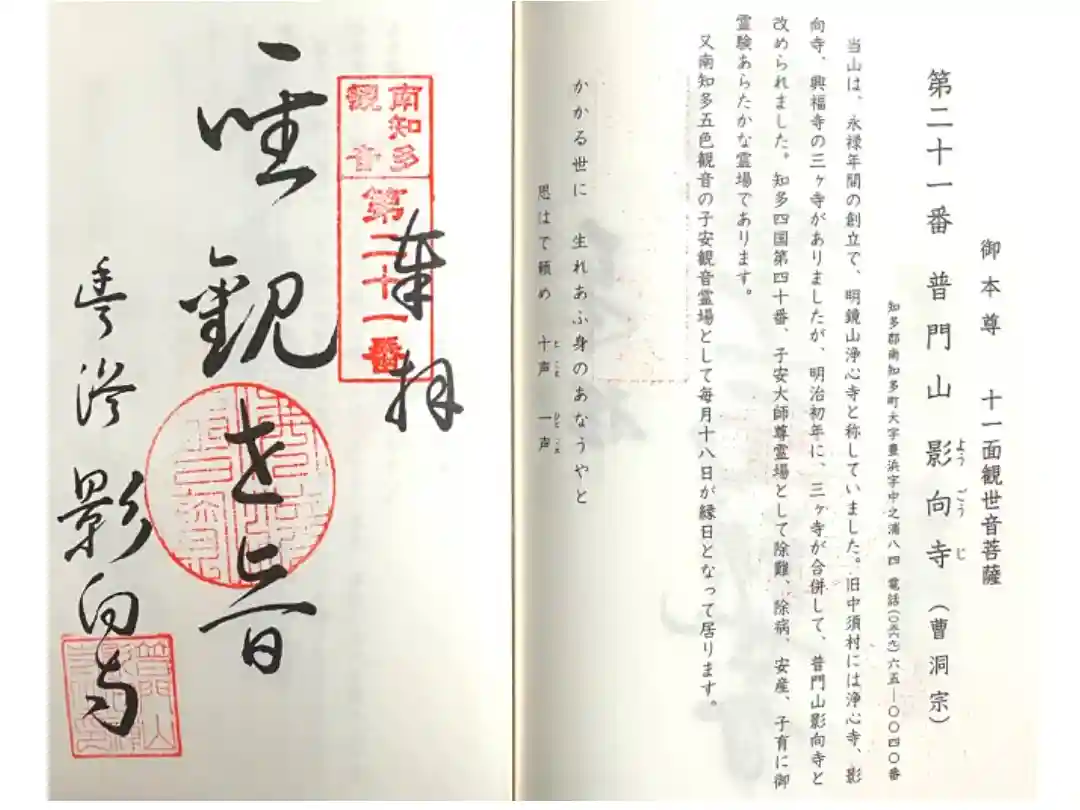 御本尊　十一面観世音菩薩
第二十一番　普門山　影向寺（曹洞宗）
ようごうじ
知多郡南知多町大字豊浜字中之浦八四　電話（〇五六九）六五―〇〇四〇番
当山は、永禄年間の創立で、明鏡山浄心寺と称していました。旧中須村には浄心寺、影
向寺、興福寺の三ヶ寺がありましたが、明治初年に、三ヶ寺が合併して、普門山影向寺と
改められました。知多四国第四十番、子安大師尊霊場として除難、除病、安産、子育に御
霊験あらたかな霊場であります。
又南知多五色観音の子安観音霊場として毎月十八日が縁日となって居ります。
かかる世に　生れあふ身のあなうやと
思はで頼め　十声　一声
とこえ　ひとこえ
奉拝
南知多
観音
第二十一番
聖観世音
豊浜　影向寺